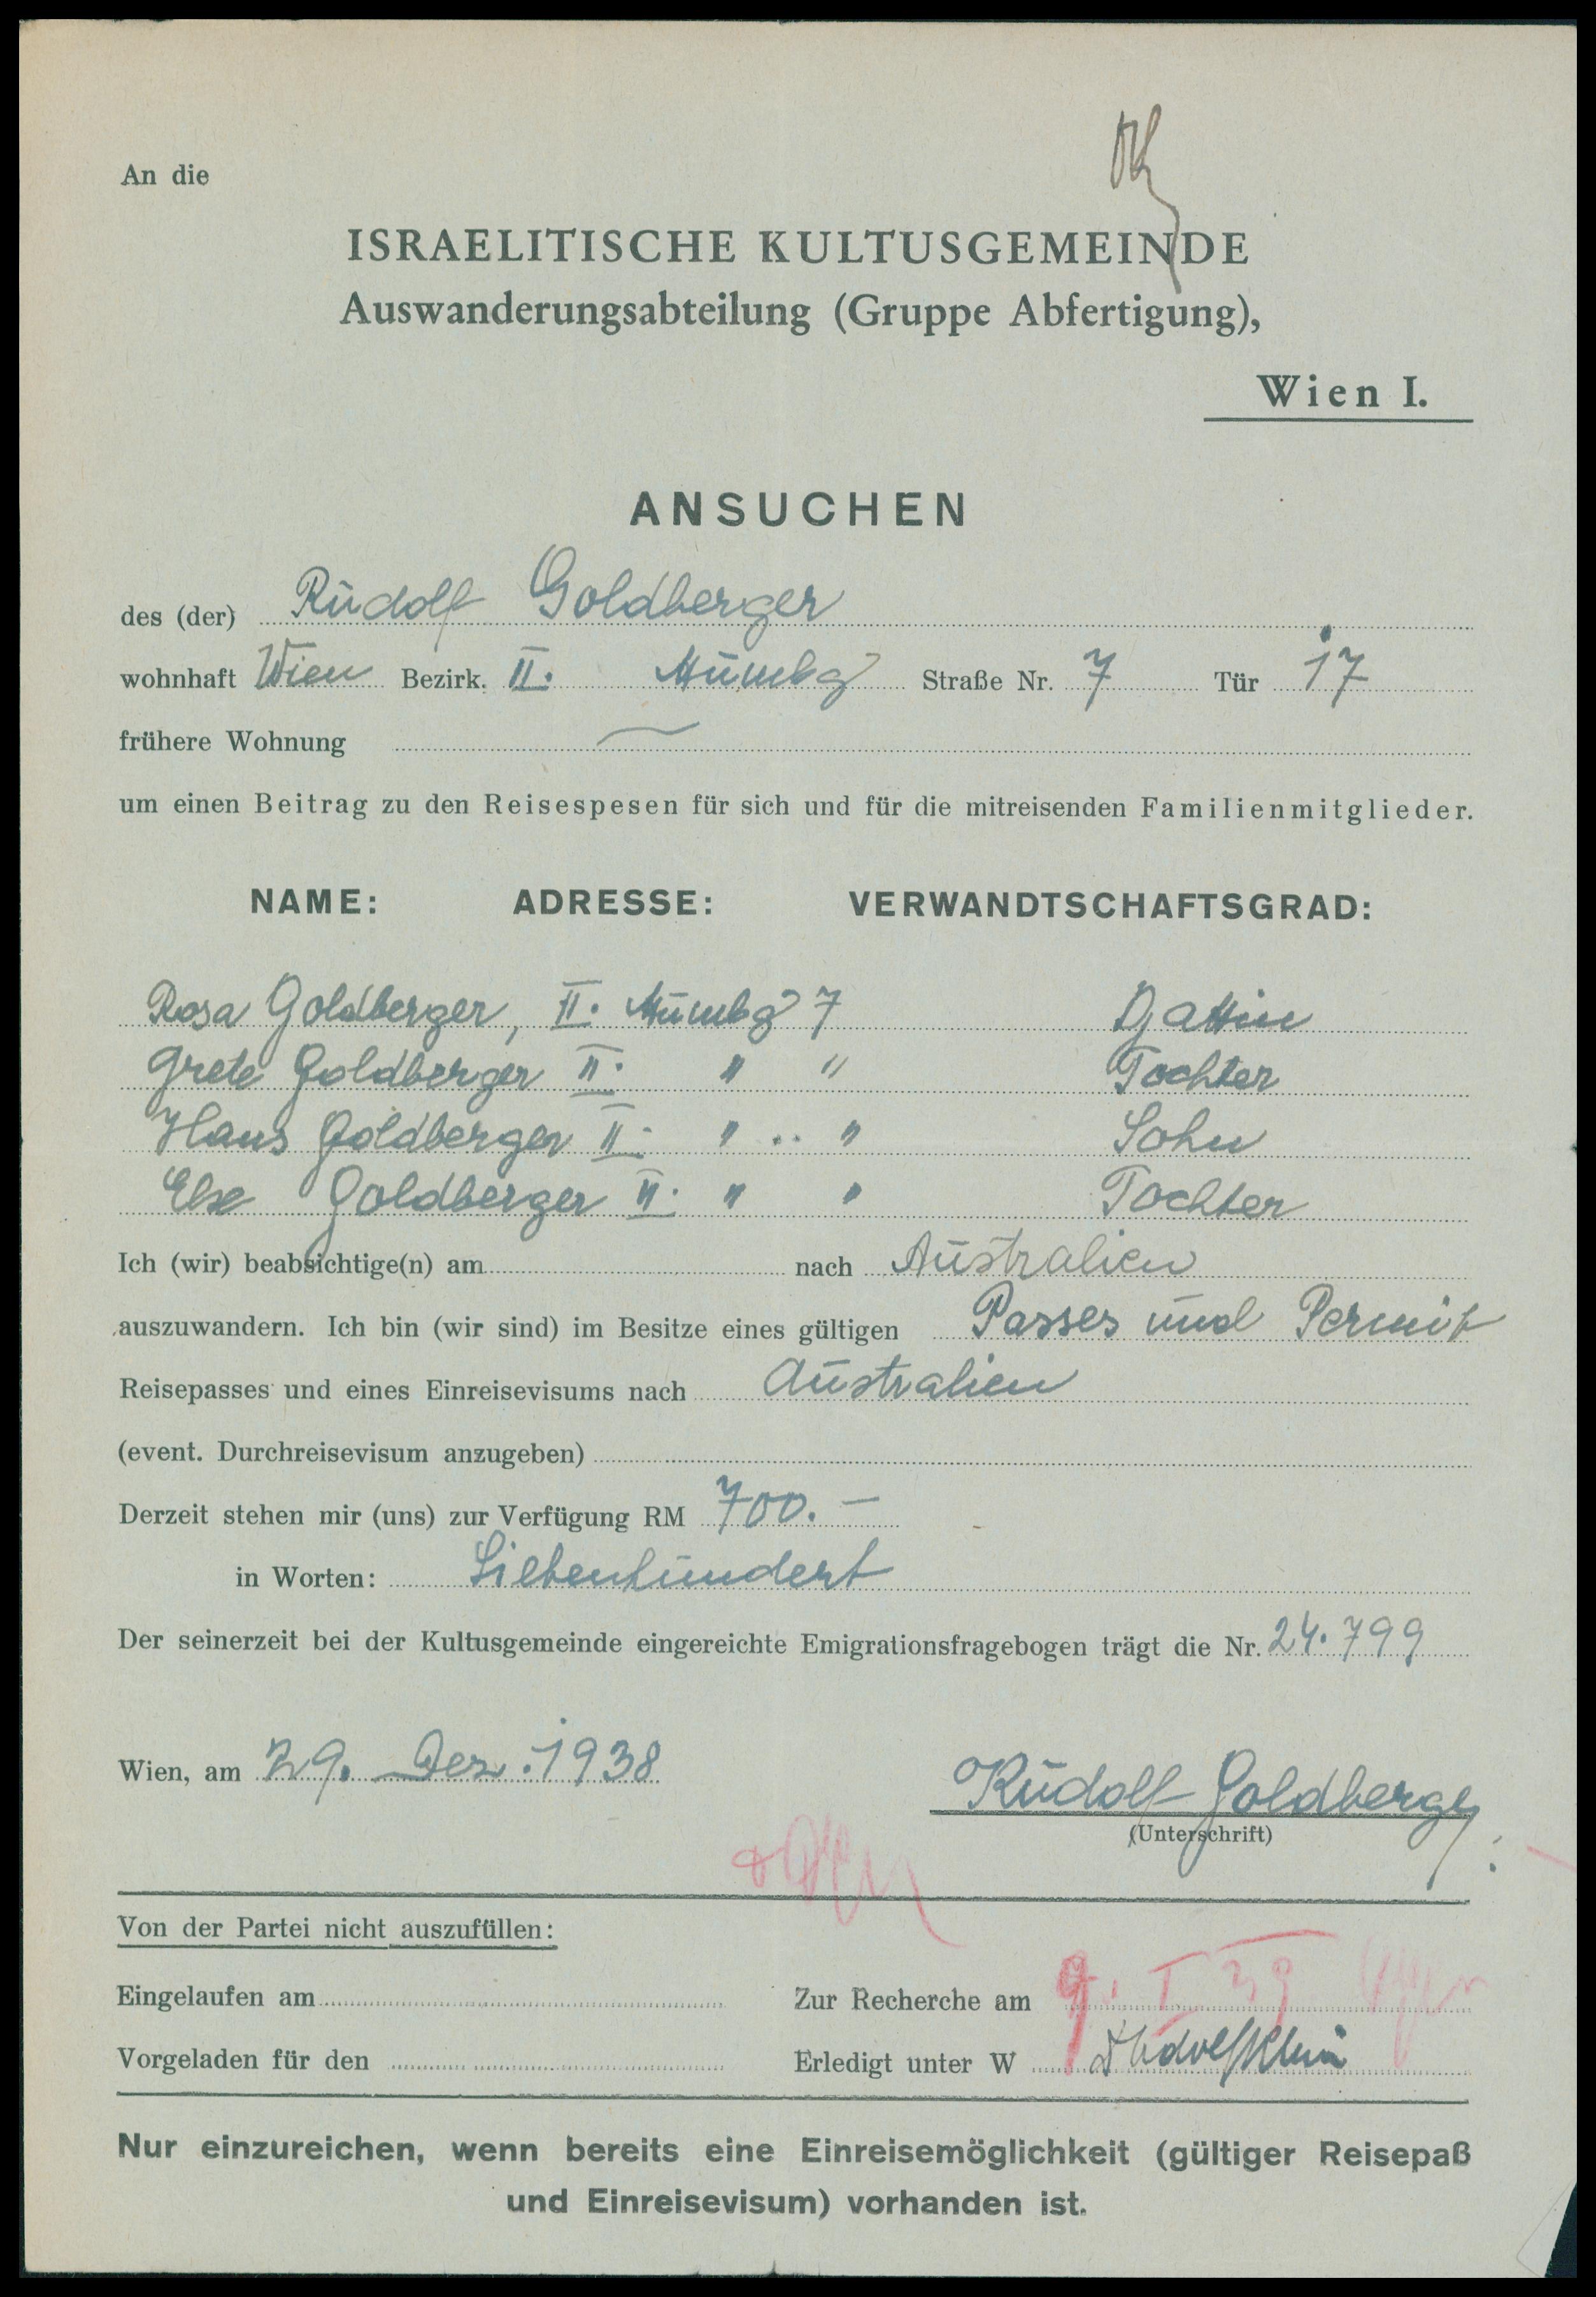 An die
ISRAELITISCHE KULTUSGEMEINDE
Auswanderungsabteilung (Gruppe Abfertigung),
Wien I.
ANSUCHEN
des (der) Rudolf Goldberger
wohnhaft Wien Bezirk. II. Mumbg Straße Nr. 7 Tür 17
frühere Wohnung —
um einen Beitrag zu den Reisespesen für sich und für die mitreisenden Familienmitglieder.
NAME: ADRESSE: VERWANDTSCHAFTSGRAD:
Rosa Goldberger, II. Mumbg 7 Gattin
Grete Goldberger II. " " Tochter
Hans Goldberger II. " " Sohn
Else Goldberger II. " " Tochter
Ich (wir) beabsichtige(n) am nach Australien
auszuwandern. Ich bin (wir sind) im Besitze eines gültigen Passes und Permit
Reisepasses und eines Einreisevisums nach Australien
(event. Durchreisevisum anzugeben)
Derzeit stehen mir (uns) zur Verfügung RM 700.—
in Worten: Siebenhundert
Der seinerzeit bei der Kultusgemeinde eingereichte Emigrationsfragebogen trägt die Nr. 24.799
Wien, am 29. Dez. 1938
Rudolf Goldberger
(Unterschrift)
Von der Partei nicht auszufüllen:
Eingelaufen am Zur Recherche am 9. I 39
Vorgeladen für den Erledigt unter W
Nur einzureichen, wenn bereits eine Einreisemöglichkeit (gültiger Reisepaß
und Einreisevisum) vorhanden ist.